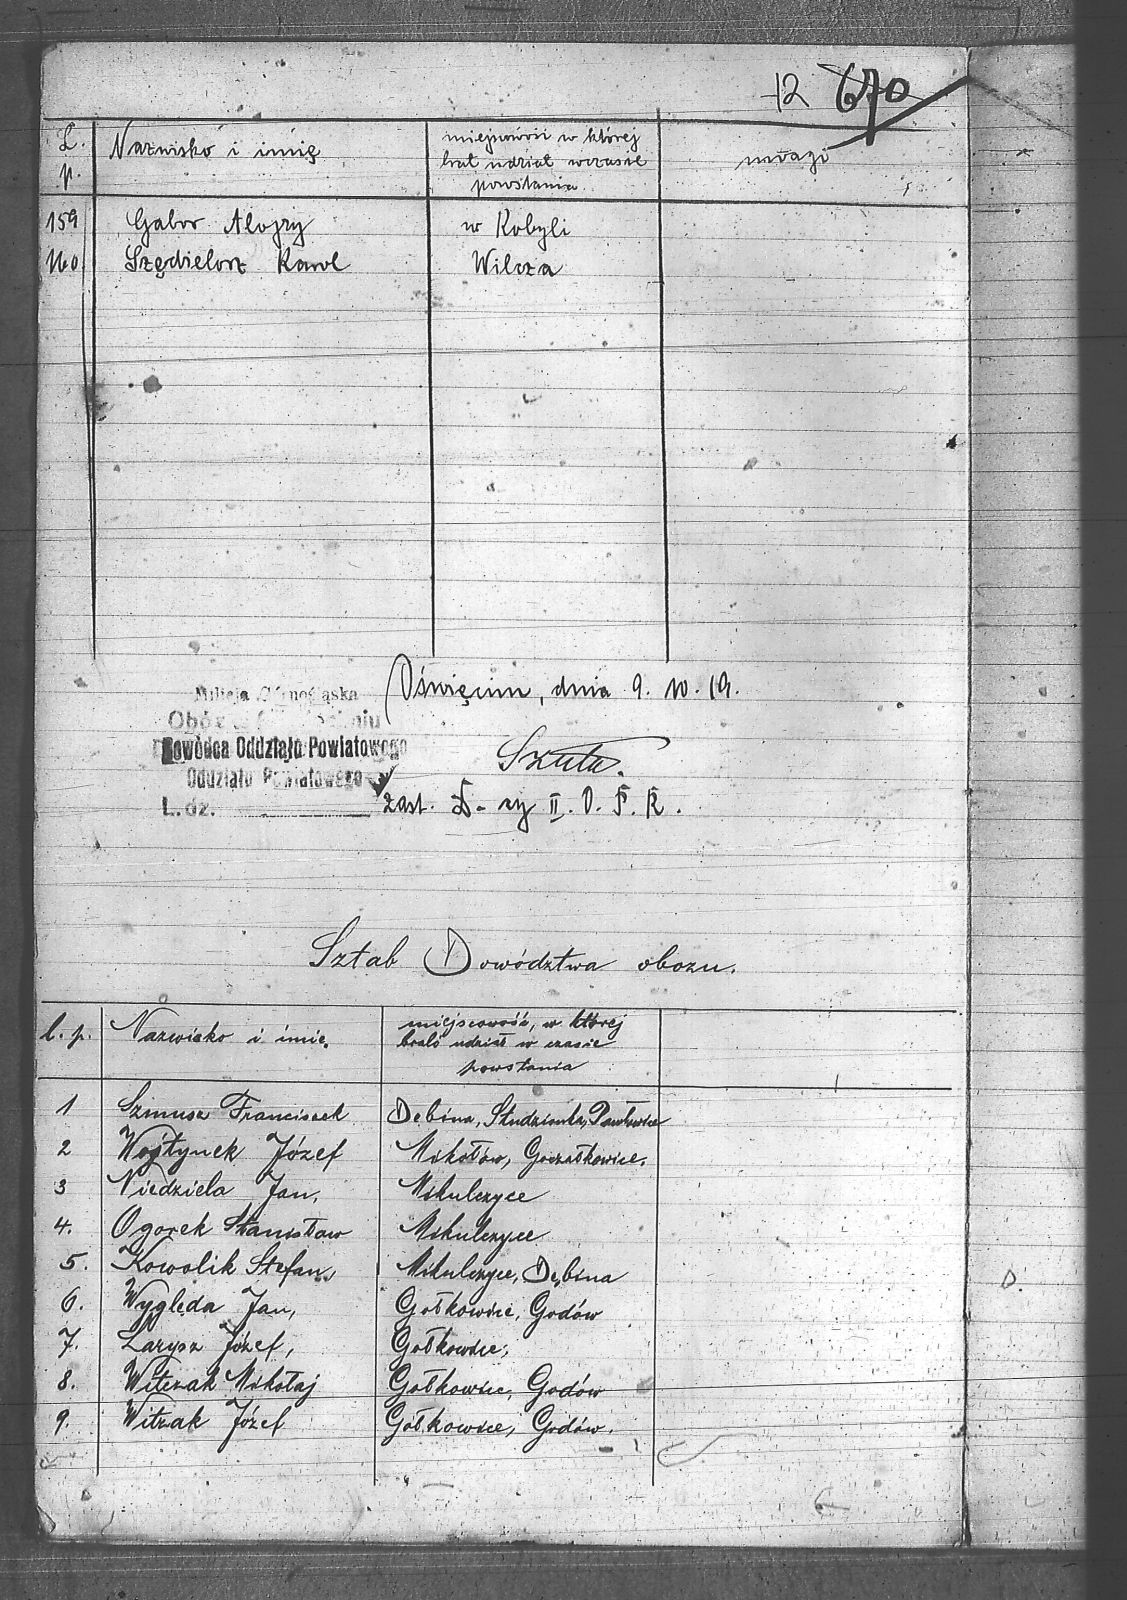 12 670
L. p. Nazwisko i imię miejscowości w której brał udział wczasie powstania uwagi
159 Gabor Alojzy w Kobyli
160 Szędzielorz Karol Wilcza
Oświęcim, dnia 9. 10. 19.
Milicja Górnośląska
Obóz w
Dowódca Oddziału Powiatowego
Oddziału Powiatowego
L. dz.
zast. D-cy II. O. P. R.
Sztab Dowództwa obozu.
l. p. Nazwisko i imię miejscowość, w której brało udział w czasie powstania
1 Szmusz Franciszek Dębina, Studzionka, Pawłowice
2 Wojtynek Józef Mikołów, Goczałkowice.
3 Niedziela Jan, Mikulczyce
4. Ogorek Stanisław Mikulczyce
5. Kowolik Stefan, Mikulczyce, Dębina
6. Wygleda Jan, Gołkowice, Godów
7. Zarysz Józef, Gołkowice,
8. Witczak Mikołaj Gołkowice, Godów
9. Witzak Józef Gołkowice, Godów.